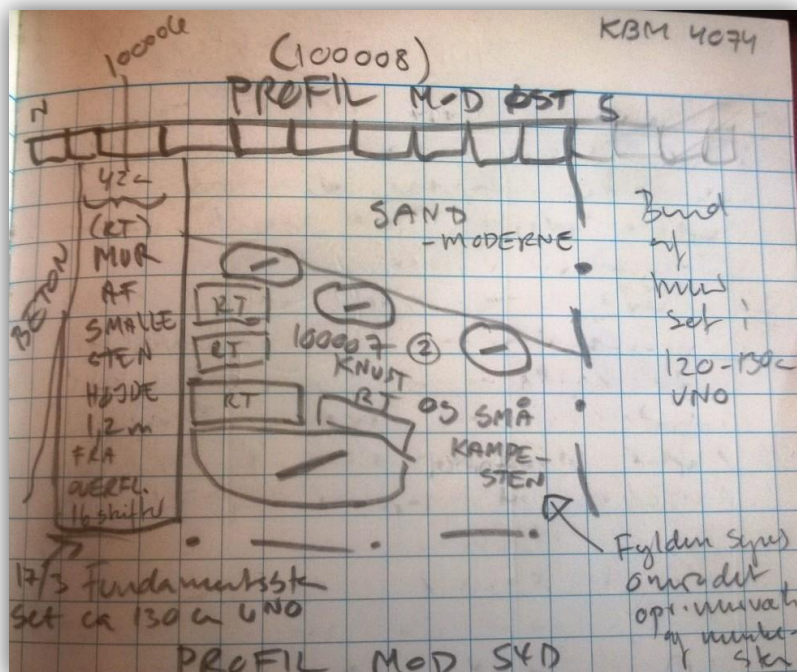 KBM 4074
100006
(100008)
PROFIL MOD ØST
N
S
BETON
42c
(RT)
MUR
AF
SMALLE
STEN
HØJDE
1,2 m
FRA
OVERFL.
16 skifter
SAND
-MODERNE
RT
RT
RT
100007 ②
KNUST
RT OG SMÅ
KAMPE-
STEN
Bund
af
mur
set i
120-130c
UNO
17/3 Fundamentsstn
Set ca 130 c UNO
Fylden synes
området
opr.
af
PROFIL MOD SYD